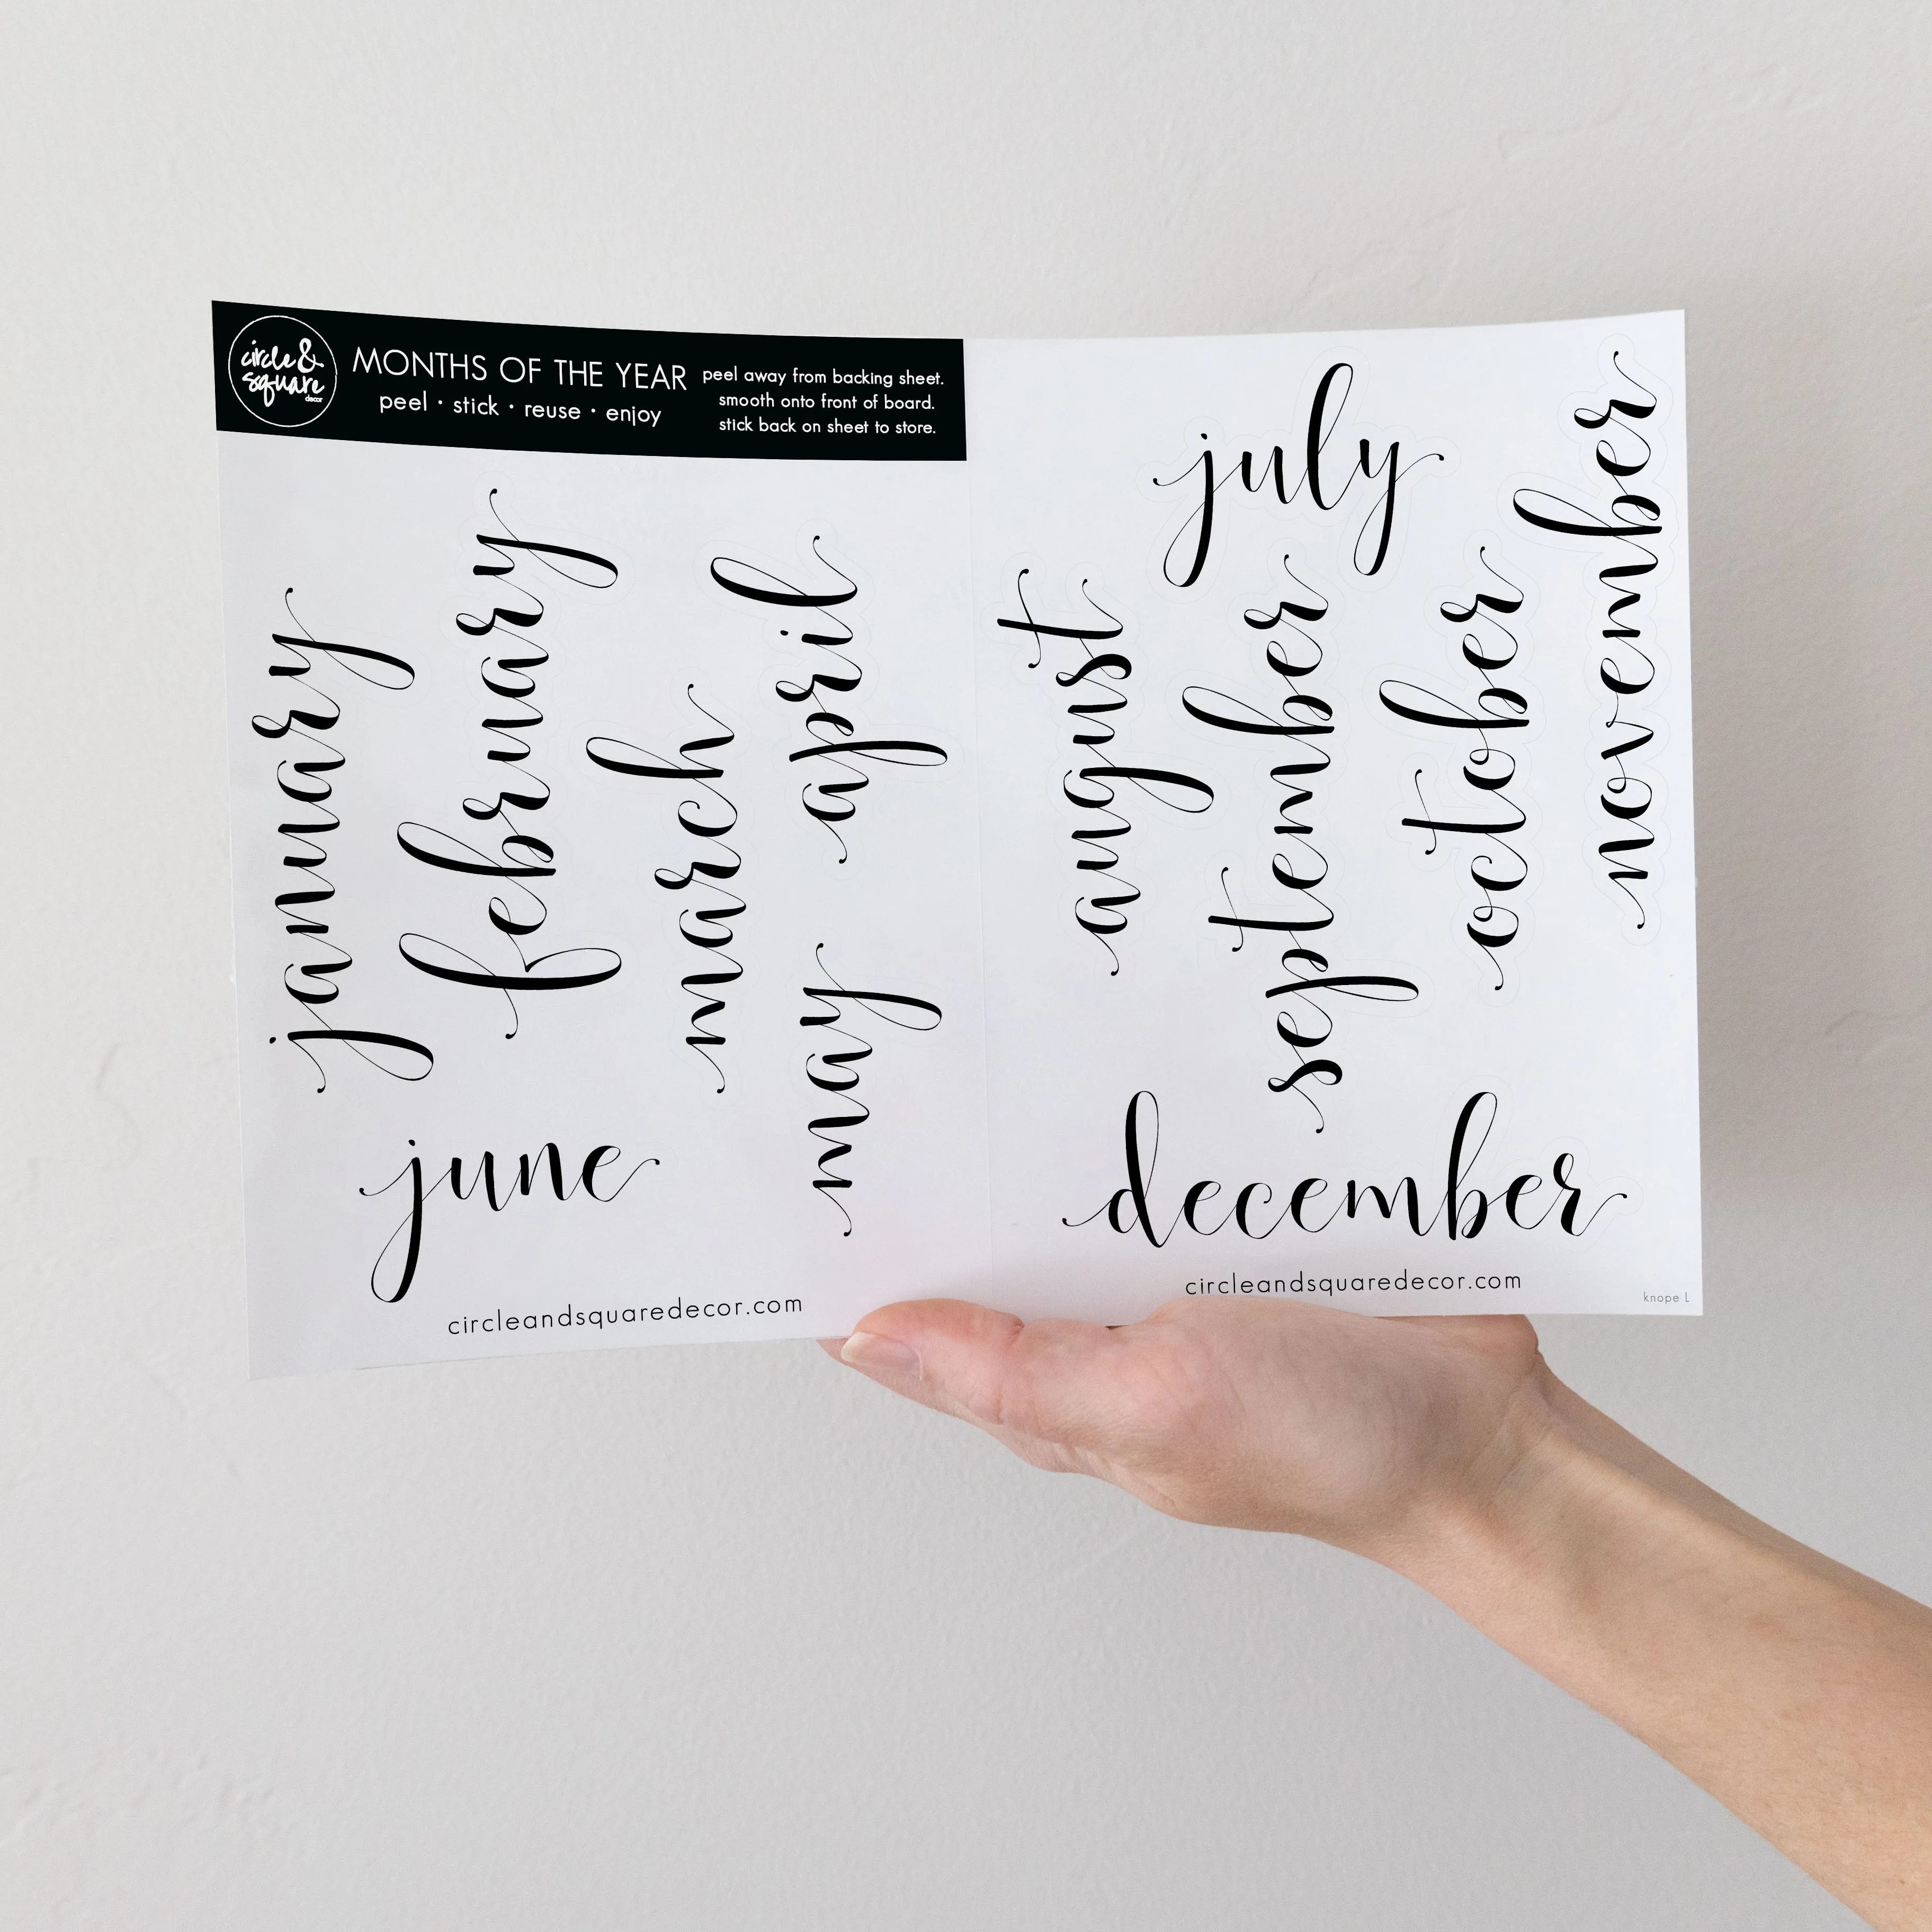 circle &
square
decor
MONTHS OF THE YEAR
peel • stick • reuse • enjoy
peel away from backing sheet.
smooth onto front of board.
stick back on sheet to store.
january
february
march
april
may
june
circleandsquaredecor.com
july
august
september
october
november
december
circleandsquaredecor.com
knope L